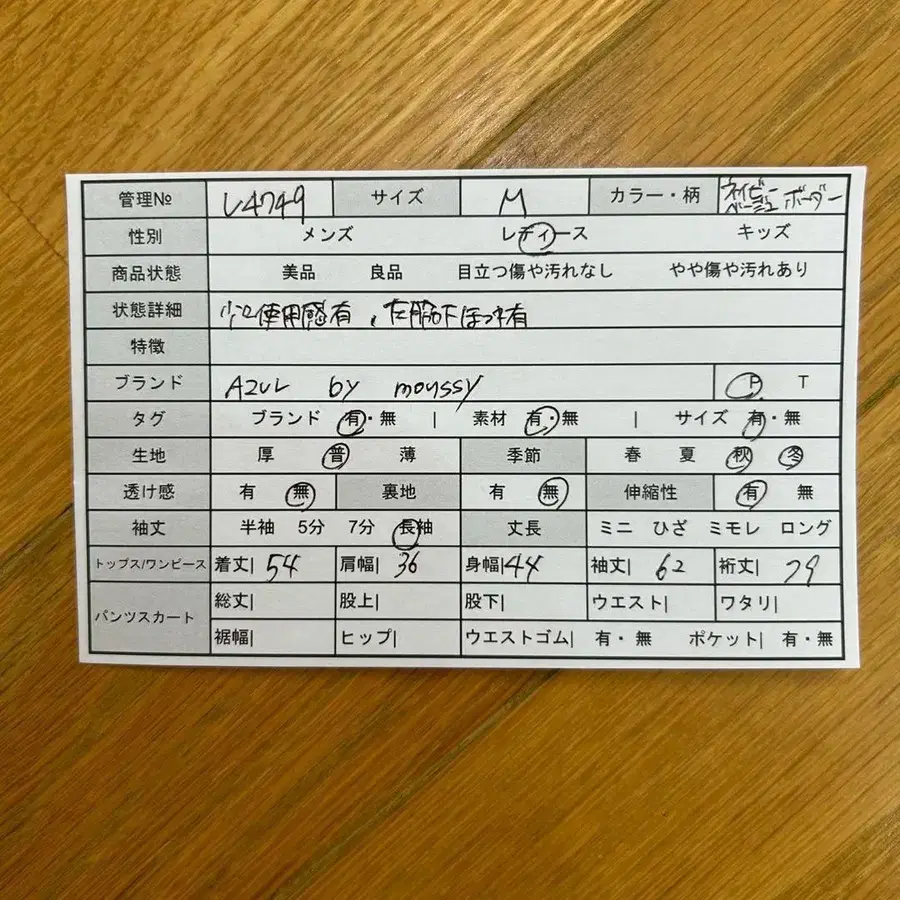 管理№ L4749 サイズ M カラー・柄 ネイビー ベージュ ボーダー
性別 メンズ レディース キッズ
商品状態 美品 良品 目立つ傷や汚れなし やや傷や汚れあり
状態詳細 使用感有、左脇下ほつれ有
特徴
ブランド AZUL by moussy P T
タグ ブランド 有・無 | 素材 有・無 | サイズ 有・無
生地 厚 普 薄 季節 春 夏 秋 冬
透け感 有 無 裏地 有 無 伸縮性 有 無
袖丈 半袖 5分 7分 長袖 丈長 ミニ ひざ ミモレ ロング
トップス/ワンピース 着丈| 54 肩幅| 36 身幅| 44 袖丈| 62 裄丈| 79
パンツスカート 総丈| 股上| 股下| ウエスト| ワタリ|
裾幅| ヒップ| ウエストゴム| 有・無 ポケット| 有・無